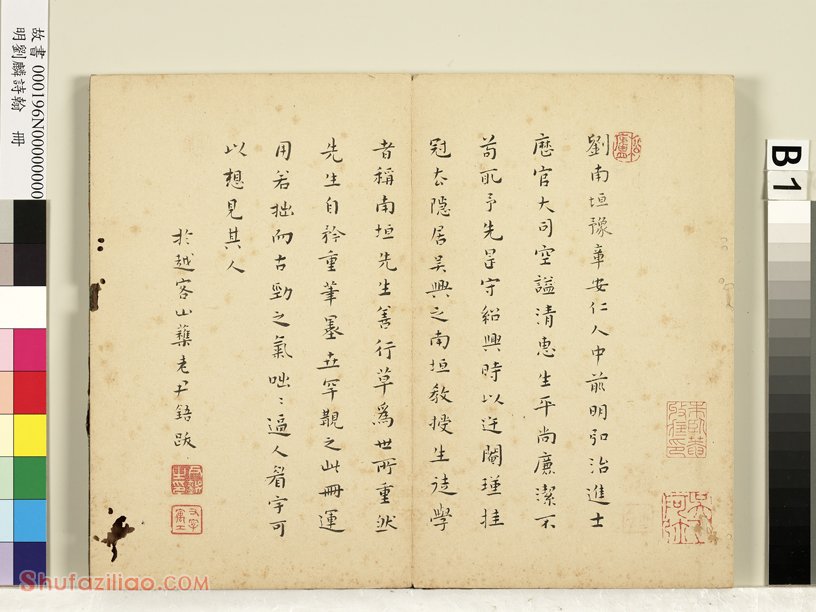 劉南垣豫章安仁人中前明弘治進士
歷官大司空謚清惠生平尚廉潔不
苟取予先是守紹興時以迕閹瑾挂
冠去隱居吳興之南垣教授生徒學
者稱南垣先生善行草爲世所重然
先生自矜重筆墨世罕覯之此冊運
用若拙而古勁之氣咄〻逼人看字可
以想見其人
於越客山藥老尹跋
故書 000196N000000000
明劉麟詩翰 冊
B1
Shufaziliao.com